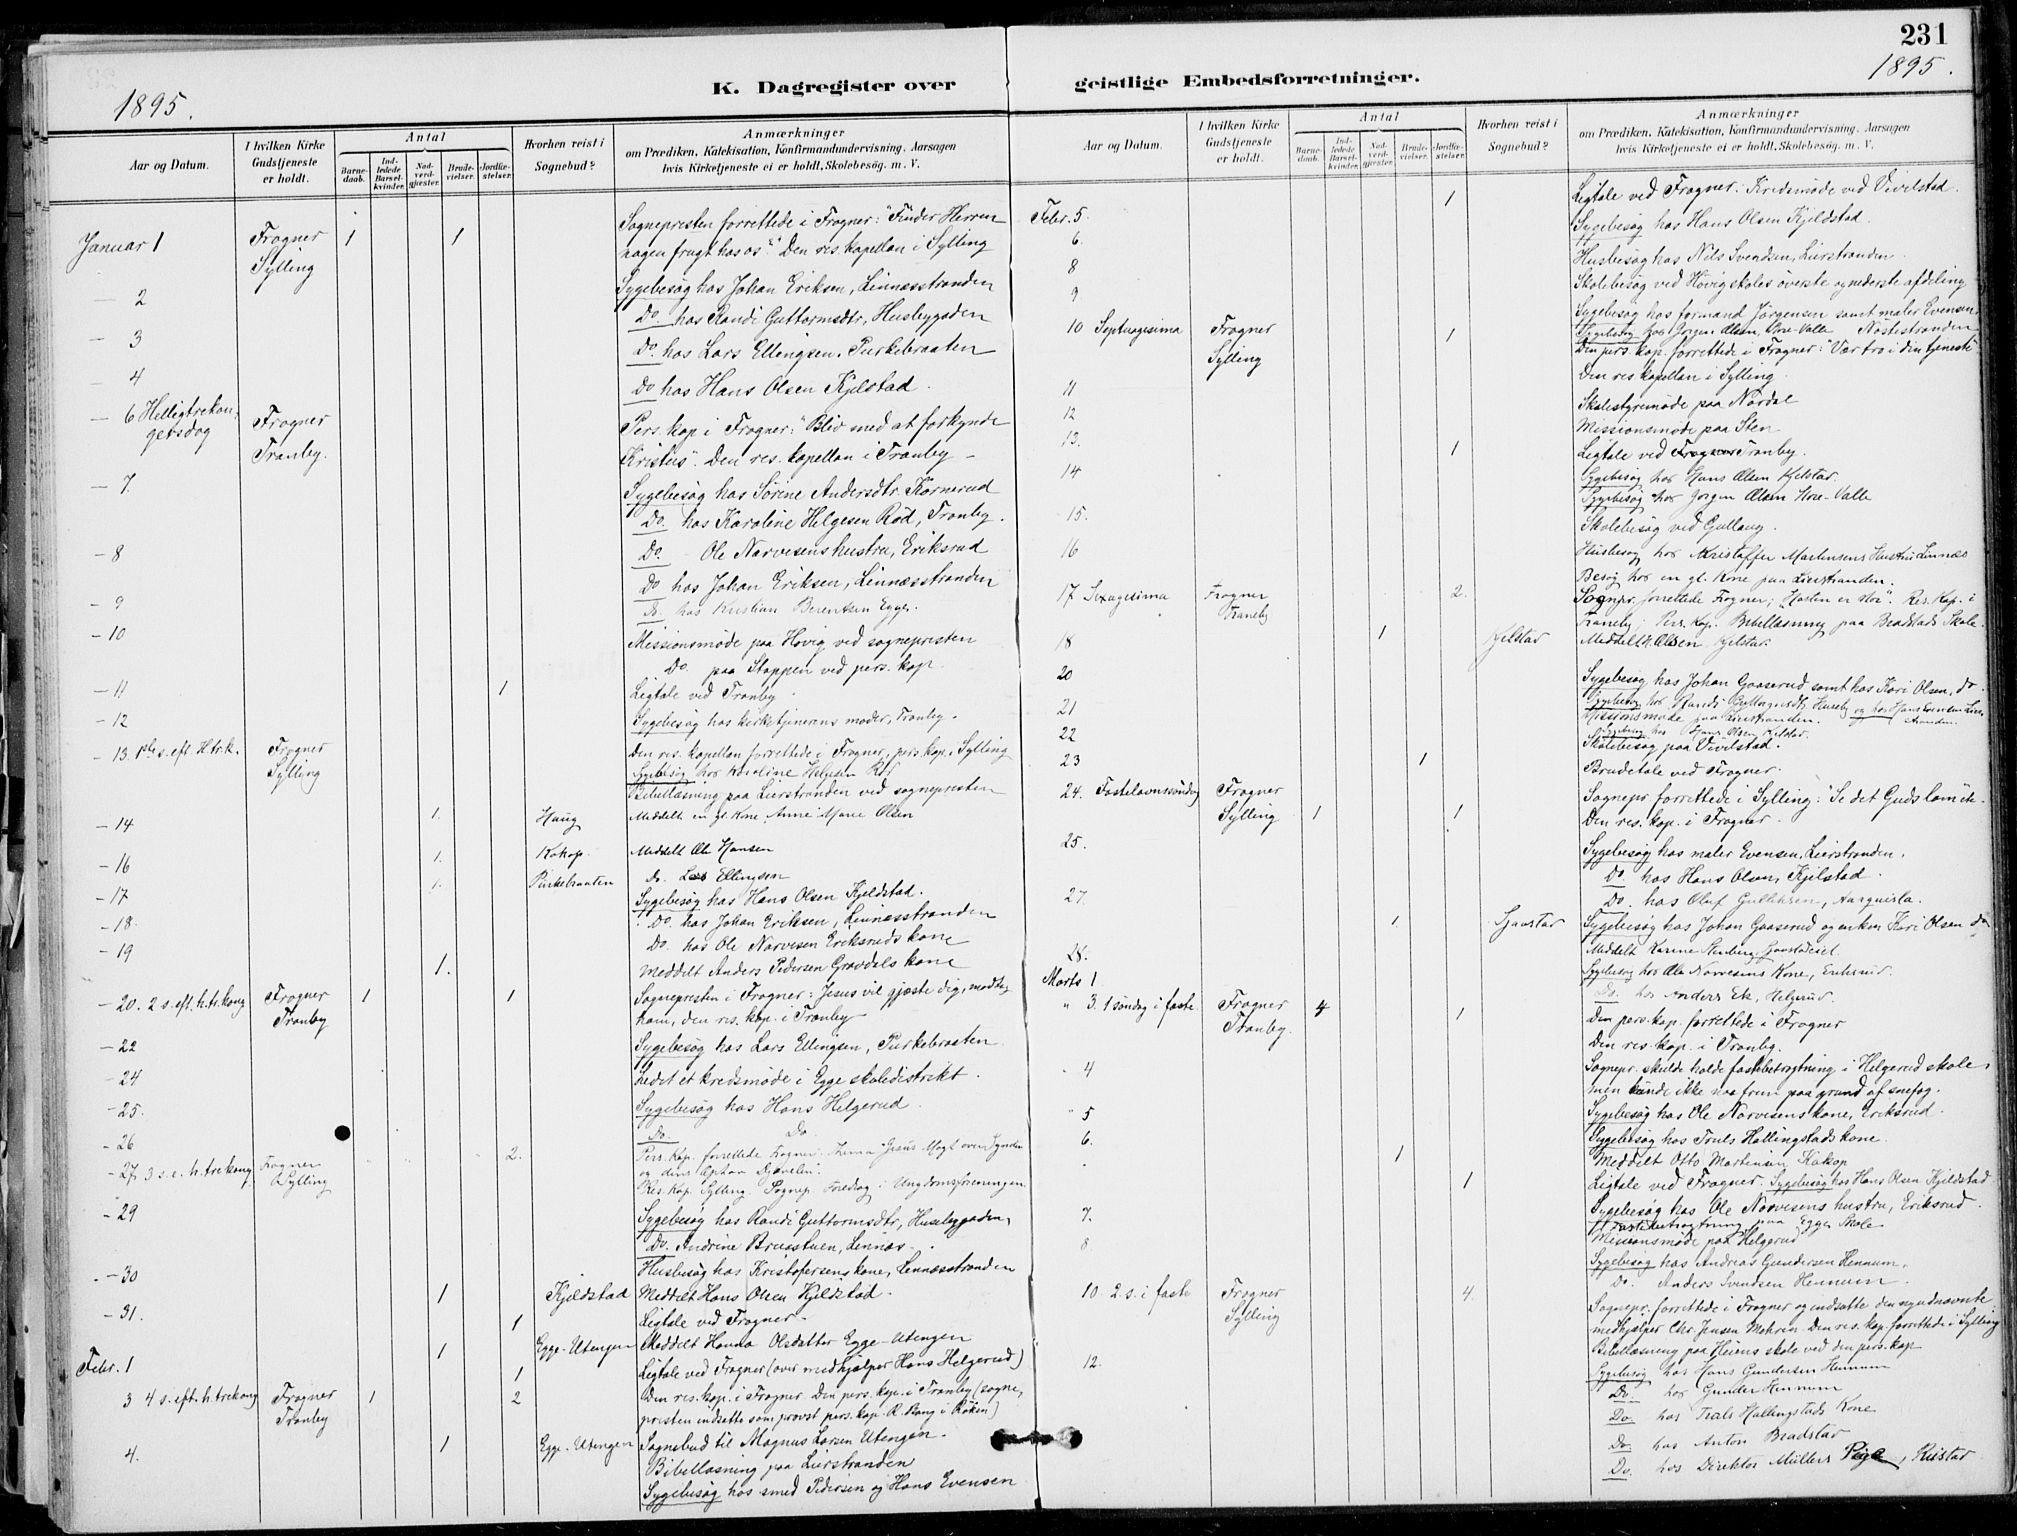 231
1895.
1895.
K. Dagregister over geistlige Embedsforretninger.
Aar og Datum.
I hvilken Kirke Gudstjeneste er holdt.
Antal
Barnedaab.
Indledede Barselkvinder.
Nadverdgjester.
Brudevielser.
Jordfæstelser.
Hvorhen reist i Sognebud?
Anmærkninger
om Prædiken, Katekisation, Konfirmandundervisning, Aarsagen
hvis Kirketjeneste ei er holdt, Skolebesøg. m. V.
Januar 1 Frogner 1 1 Sognepresten forrettede i Frogner: "Finder Herren
Sylling nogen frugt hos os?" Den res. kapellan i Sylling
- 2 Sygebesøg hos Johan Eriksen, Linnæsstranden
- 3 Do. hos Randi Guttormsdtr, Husbygaden
- 4 Do. hos Lars Ellingsen, Purkebraaten
Do hos Hans Olsen Kjelstad.
- 6 Helligtrekongersdag Frogner Pers. kap i Frogner: "Bliv med at forkynde
Tranby. Kristus". Den res. kapellan i Tranby -
- 7. Sygebesøg hos Sørine Andersdtr. Kornerud
Do. hos Karoline Helgesen Rød, Tranby.
- 8 Do - Ole Narvesens hustru, Eriksrud
Do hos Johan Eriksen, Linnæsstranden
- 9 Do. hos Kristian Berentsen Egge.
- 10 Missionsmøde paa Høvig ved sognepresten
Do. paa Stoppen ved pers. kap.
- 11 1 Ligtale ved Tranby
- 12 Sygebesøg hos kirketjenerens moder, Tranby.
- 13. 1ste s. eft. H.tr.k. Frogner Den res. kapellan forrettede i Frogner, pers. kap. i Sylling
Sylling Sygebesøg hos Karoline Helgesen Rød
Bibellæsning paa Lierstranden ved sognepresten
- 14 1. Haug Meddelt en gl. Kone Anne Marie Olsen
- 16 1. Kokop. Meddelt Ole Hansen
- 17 1. Purkebraaten Do. Lars Ellingsen
- 18. Sygebesøg hos Hans Olsen Kjeldstad.
Do. hos Johan Eriksen, Linnæsstranden
- 19 Do. hos Ole Narvesen Eriksruds kone
1. Meddelt Anders Pedersen Gravdals kone
- 20. 2 s. eft. h. tr. kong Frogner 1 1 Sognepresten i Frogner: Jesus vil gjæste dig, modtag
Tranby ham, den res. kap. i Tranby
- 22 Sygebesøg hos Lars Ellingsen, Purkebraaten
- 24 Ledet et kredsmøde i Egge skoledistrikt.
- 25. Sygebesøg hos Hans Helgerud.
- 26 Do. Do
- 27 3 s. e. h. trekong Frogner 2. Pers. Kap. forrettede Frogner. Thema "Jesus Magt over Synden
Sylling og dens Ophav Djævelen".
Res. Kap. Sylling. Sognep. Foredrag i Ungdomsforeningen
- 29 Sygebesøg hos Randi Guttormsdtr, Husebygaden,
Do. Andrine Bruastuen, Linnæs.
- 30 Husbesøg hos Kristofersens kone, Linnæsstranden
1 Kjeldstad Meddelt Hans Olsen Kjeldstad.
- 31. 1 Ligtale ved Frogner.
1 Egge-Utengen Meddelt Hanna Olsdatter Egge-Utengen
Febr. 1 1 Ligtale ved Frogner (over medhjælper Hans Helgerud)
3 4 s. eft. h. trekong Frogner 1 2 Den res. kap. i Frogner. Den pers. kap. i Tranby (sogne-
Tranby presten indsatte som provst pers. kap. R. Bang i Røken)
4. 1 Egge-Utengen Sognebud til Magnus Larsen Utengen.
Bibellæsning paa Lierstranden
Sygebesøg hos smed Pedersen og Hans Evensen
Aar og Datum.
I hvilken Kirke Gudstjeneste er holdt.
Antal
Barnedaab.
Indledede Barselkvinder.
Nadverdgjester.
Brudevielser.
Jordfæstelser.
Hvorhen reist i Sognebud?
Anmærkninger
om Prædiken, Katekisation, Konfirmandundervisning, Aarsagen
hvis Kirketjeneste ei er holdt, Skolebesøg. m. V.
Febr. 5. 1 Ligtale ved Frogner. Kredsmøde ved Vivelstad.
6. Sygebesøg hos Hans Olsen Kjeldstad.
8 Husbesøg hos Nils Svendsen, Lierstranden.
9 Skolebesøg ved Høvig skoles øverste og nederste afdeling
Sygebesøg hos formand Jørgensen samt maler Evensen,
Sygebesøg hos Jørgen Olsen, Hore-Valle Nøstestranden
10 Septuagesima Frogner 1 Den pers. kap. forrettede i Frogner: "Vær tro i din tjeneste"
Sylling Den res. kapellan i Sylling.
11 Skolestyremøde paa Nordal
12 Missionsmøde paa Sten
13. 1 Ligtale ved Tranby.
14 Sygebesøg hos Hans Olsen Kjelstad.
Sygebesøg hos Jørgen Olsen Hore-Valle
15. Skolebesøg ved Gullaug.
16 Husbesøg hos Kristoffer Martinsens Hustru Linnæs
Besøg hos en gl. Kone paa Lierstranden.
17 Sexagesima Frogner 2. Sognpr. forrettede Frogner; "Høsten er stor". Res. Kap. i
Traneby Traneby; Pers. Kap. Bibellæsning paa Bradstads Skole.
18 1 Kjelstad Meddelt H. Olsen Kjelstad.
20 Sygebesøg hos Johan Gaaserud samt hos Kari Olsen, do.
21 Sygebesøg hos Randi Guttormsdtr, Huseby og hos Hans Evensen Lierstranden.
Missionsmøde paa Lierstranden.
22 Sygebesøg hos Hans Olsen Kjelstad.
Skolebesøg paa Vivelstad.
23 1 Brudetale ved Frogner.
24. Fastelavnssøndag Frogner 1 1 Sognepr. forrettede i Sylling: "Se det Guds lam" etc.
Sylling Den res. kap. i Frogner.
25. Sygebesøg hos maler Evensen, Lierstranden.
Do hos Hans Olsen, Kjelstad.
27. Do. hos Oluf Gulliksen,
1 Gjaastad Sygebesøg hos Johan Gaaserud og enken Kari Olsen do
28. Meddelt Karine
Marts 1 Sygebesøg hos Ole Narvesens Kone, Eriksrud.
Do. hos Anders Ek, Helgerud.
" 3. 1 søndag i faste Frogner 4 1 Den pers. kap. forrettede i Frogner
Tranby. Den res. kap. i Tranby.
" 4 Sognepr. skulde holde fastebetragtning i Helgerud skole,
men kunde ikke naa frem paa grund af snefog.
" 5 Sygebesøg hos Ole Narvesens kone, Eriksrud.
6. Sygebesøg hos Truls Hallingstads kone.
1 Meddelt Otto Martinsen Kokop
1 Ligtale ved Frogner. Sygebesøg hos Hans Olsen Kjeldstad
7. Sygebesøg hos Ole Narvesens hustru, Eriksrud.
Fastebetragtning paa Egge Skole
8 Missionsmøde paa Helgerud
Sygebesøg hos Andreas Gundersen Hennum,
Do. Anders Svendsen Hennum.
10 2. s. i faste Frogner 4. Sognepr. forrettede i Frogner og indsatte den nyudnævnte
Sylling medhjælper Chr. Jensen Mehren. Den res. kap. forrettede i Sylling
Bibellæsning paa Heiens skole ved den pers. kap
12. Sygebesøg hos Hans Gundersen Hennum
Do. hos Gunder Hennum
Do. hos Trals Hallingstads Kone
Do hos Anton Bradstad
Do. hos Direktør Müllers Pige, Rustad